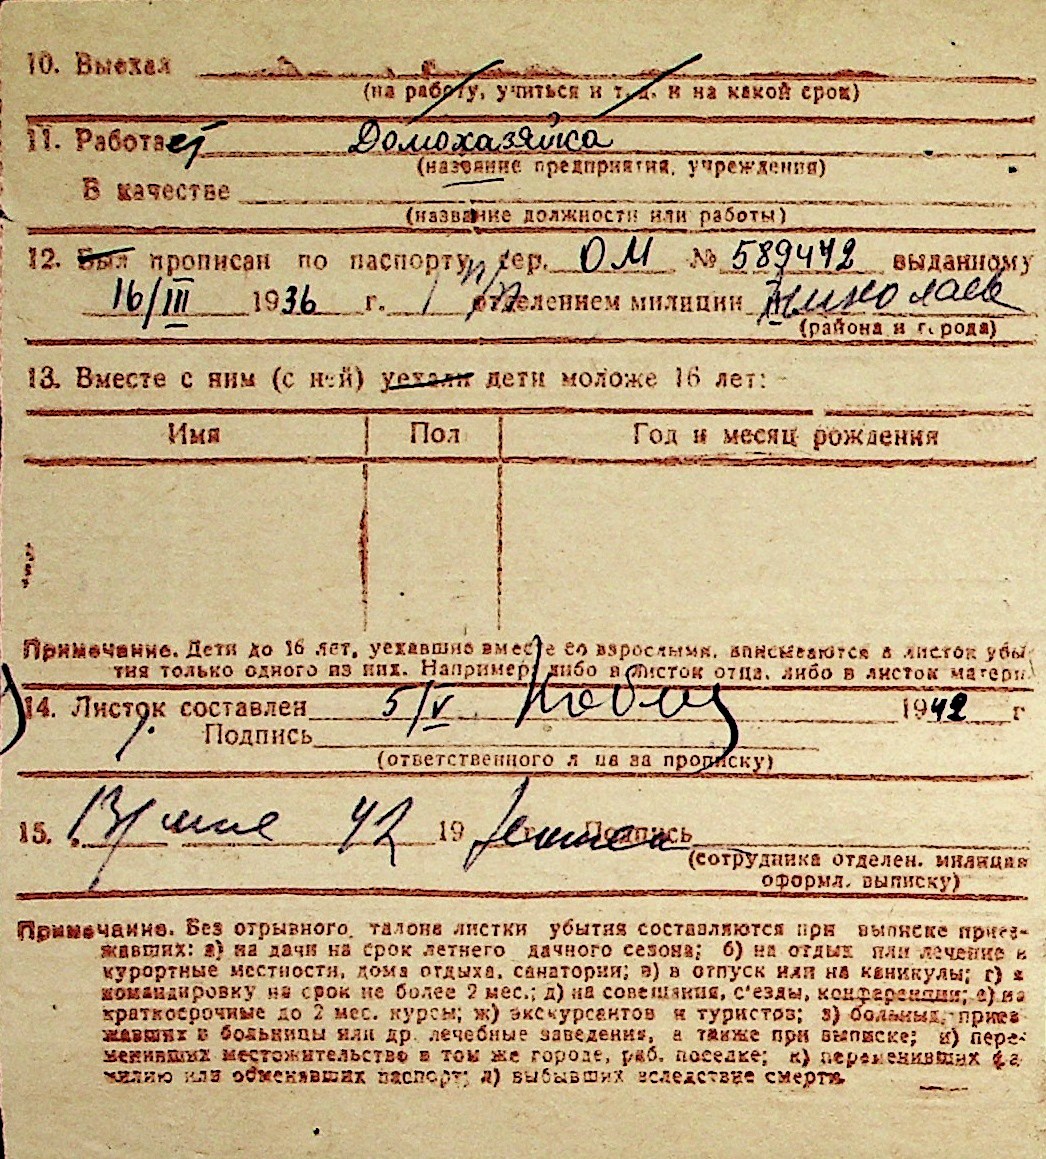 10. Выехал
(на работу, учиться и т. д. и на какой срок)
11. Работает Домохазяйка
(название предприятия, учреждения)
В качестве
(название должности или работы)
12. Был прописан по паспорту сер. ОМ № 589442 выданному
16/III 1936 г. 1 отделением милиции Николаев
(района и города)
13. Вместе с ним (с ней) уехали дети моложе 16 лет: -
Имя Пол Год и месяц рождения
Примечание. Дети до 16 лет, уехавшие вместе со взрослыми, вписываются в листок убы-
тия только одного из них. Например, либо в листок отца, либо в листок матери.
14. Листок составлен 5/V 1942 г
Подпись
(ответственного лица за прописку)
15. 13/ мае 42 19 г. Подпись
(сотрудника отделен. милиции
оформл. выписку)
Примечание. Без отрывного талона листки убытия составляются при выписке приез-
жавших: а) на дачи на срок летнего дачного сезона; б) на отдых или лечение в
курортные местности, дома отдыха, санатории; в) в отпуск или на каникулы; г) в
командировку на срок не более 2 мес.; д) на совещания, с'езды, конференции; е) на
краткосрочные до 2 мес. курсы; ж) экскурсантов и туристов; з) больных, приез-
жавших в больницы или др. лечебные заведения, а также при выписке; и) пере-
менивших местожительство в том же городе, раб. поселке; к) переменивших фа-
милию или обменявших паспорт; л) выбывших вследствие смерти.